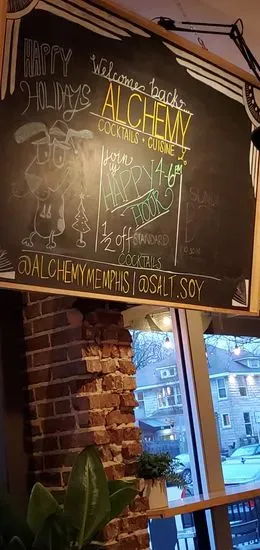 HAPPY
Holidays
Welcome back to
ALCHEMY
COCKTAILS + CUISINE
Join
us 4-6PM
HAPPY
HOUR
1/2 off STANDARD
COCKTAILS
SUNDAY
@ALCHEMYMEMPHIS | @SALT.SOY